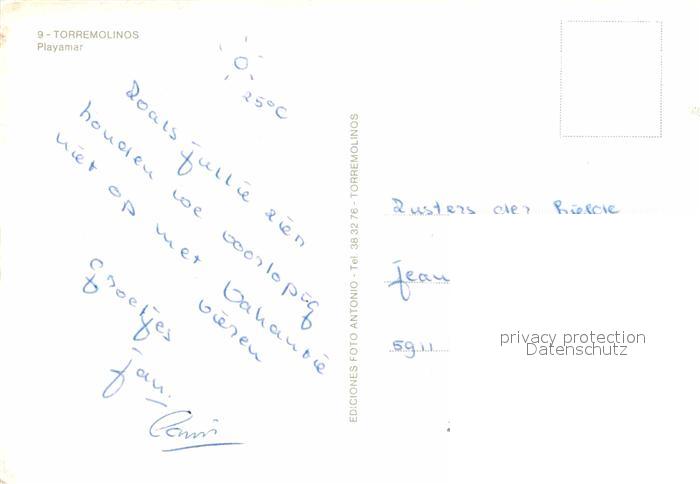 9 - TORREMOLINOS
Playamar
25°C
Zoals jullie zien
houden we voorlopig
niet op met vakantie
vieren
Groetjes
Jan.
EDICIONES FOTO ANTONIO - Tel. 38 32 76 - TORREMOLINOS
Zusters der Liefde
Jean
5911
privacy protection
Datenschutz